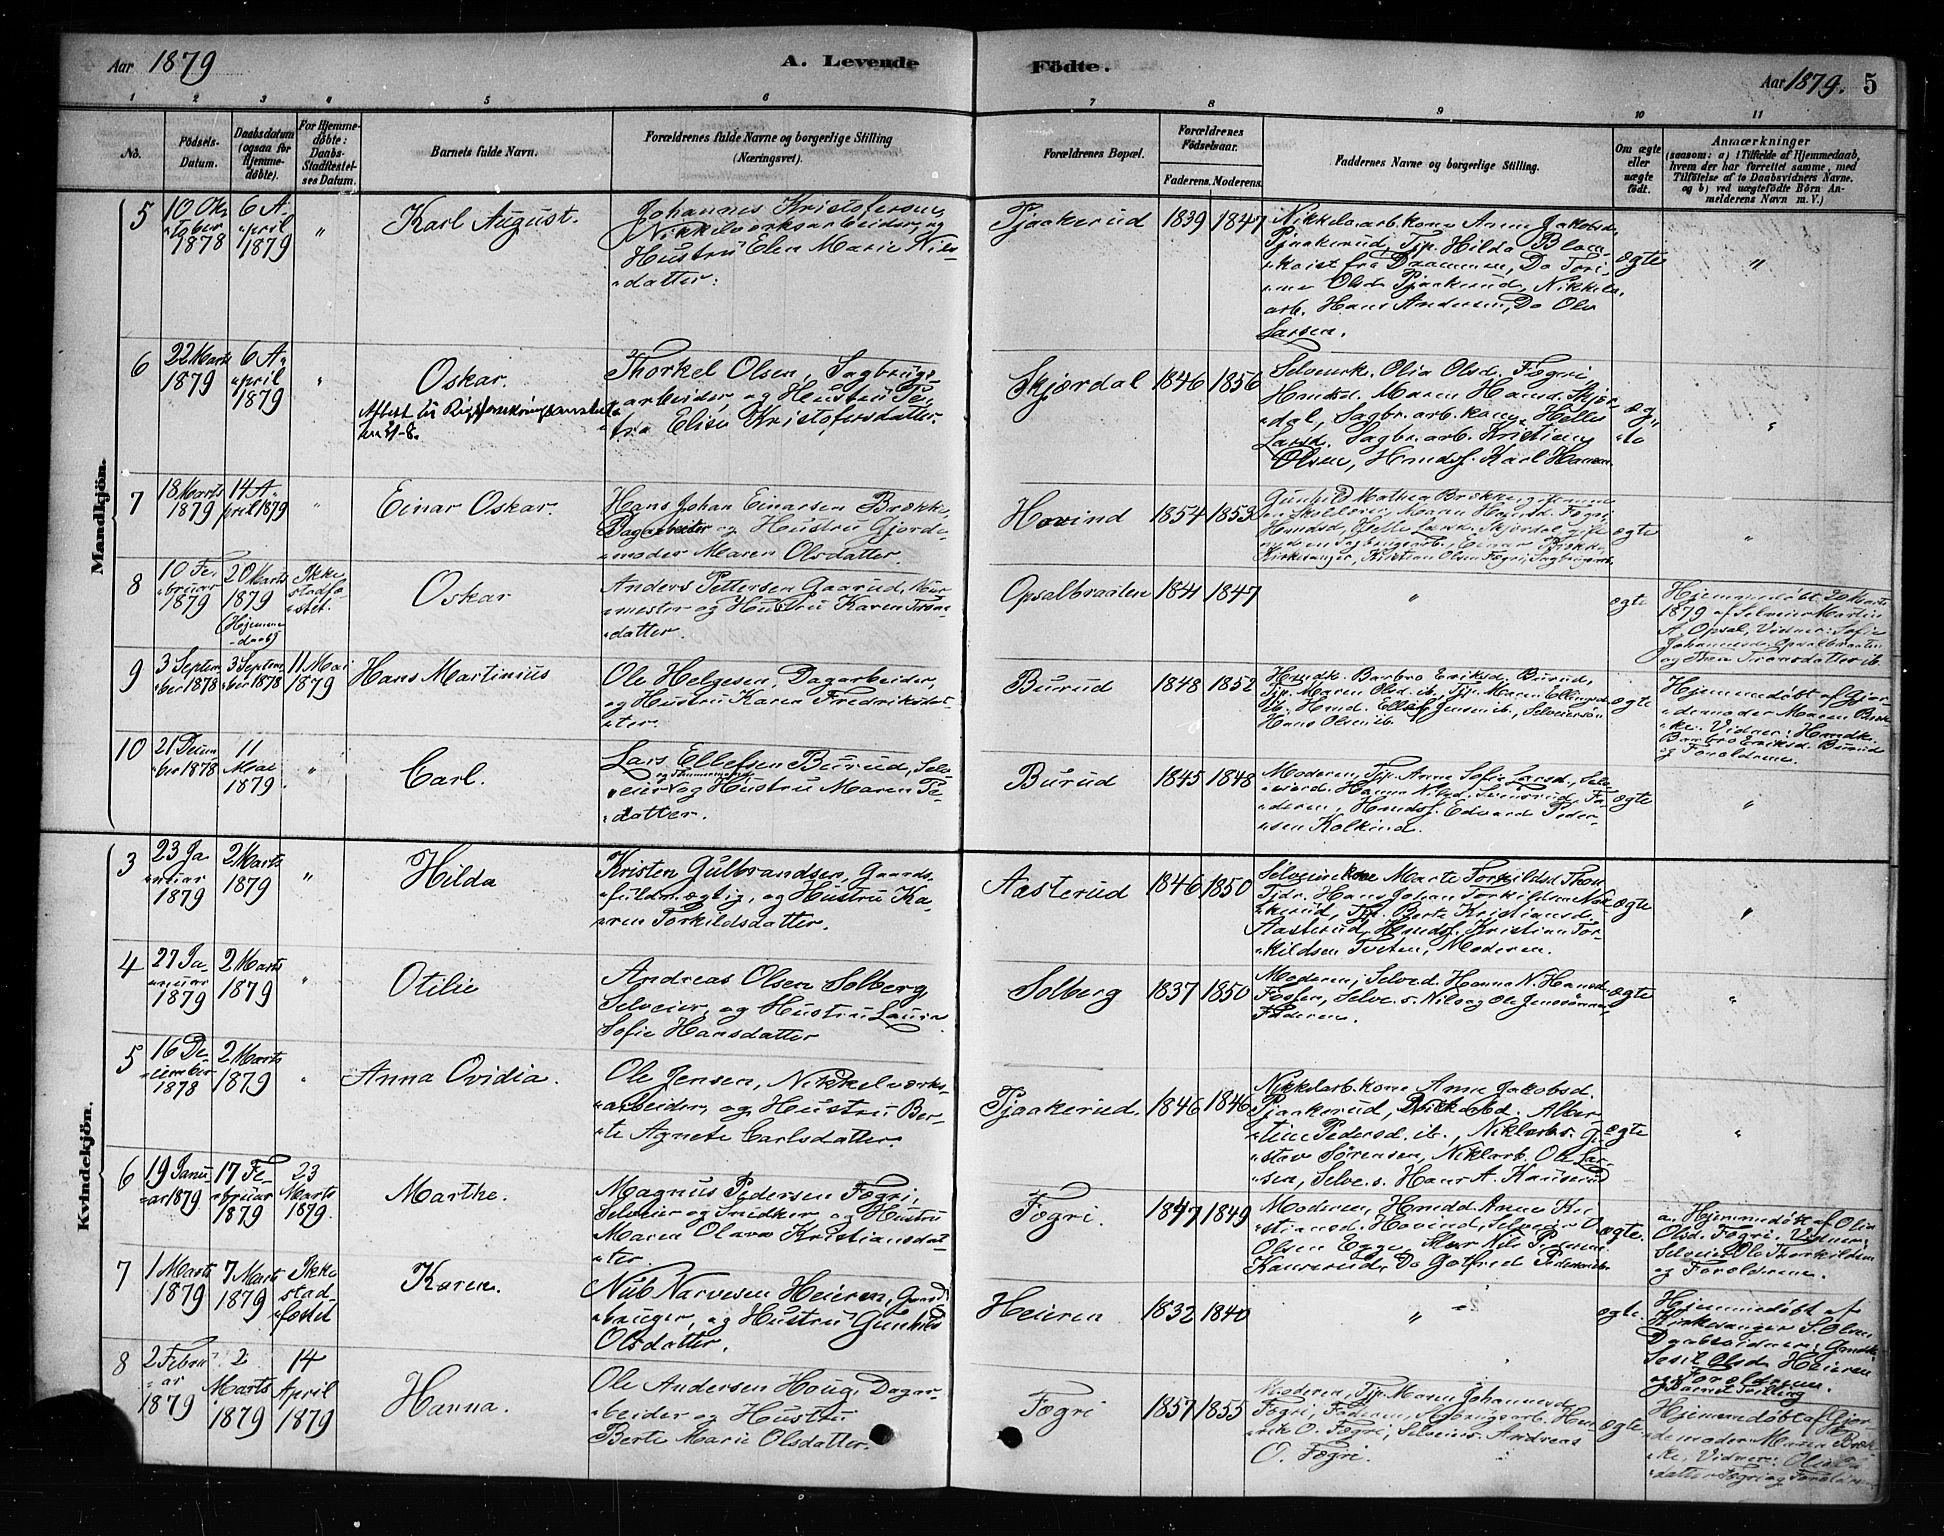 Aar 1879
A. Levende
Födte.
Aar 1879. 5
1 2 3 4 5 6 7 8 9 10 11
No.
Födsels-
Datum.
Daabsdatum
(ogsaa for
Hjemme-
döbte).
For Hjemme-
döbte:
Daabs-
Stadfæstel-
ses Datum.
Barnets fulde Navn.
Forældrenes fulde Navne og borgerlige Stilling
(Næringsvei).
Forældrenes Bopæl.
Forældrenes
Födselsaar.
Faderens. Moderens.
Faddernes Navne og borgerlige Stilling.
Om ægte
eller
uægte
födt.
Anmærkninger
(saasom: a) i Tilfælde af Hjemmedaab,
hvem der har forrettet samme, med
Tilföielse af to Daabsvidners Navne.
og b) ved uægtefödte Börn An-
melderens Navn m. V.)
Mandkjön.
5
10 Ok-
tober
1878
6 A-
pril
1879
"
Karl August.
Johannes Kristofersen,
Nikkelverksarbeider, og
Hustru Elen Marie Nils-
datter.
Tjaakerud
1839 1847
Nikkelarb.kone Anne Jakobsd.
Tjaakerud, Tjp. Hilda Blom-
kvist fra Drammen, Do Tori-
ne Olsd. Tjaakerud, Nikkel-
arb. Hans Andersen, Do Ole
Larsen.
ægte
"
6
22 Marts
1879
6 A-
pril
1879
"
Oskar.
Thorkel Olsen, Sagbrugs-
arbeider, og Hustru Pe-
tra Elise Kristofersdatter.
Skjørdal
1846 1856
Selveierk. Olia Olsd. Føgri
Hmdsd. Maren Hansd. Skjør-
dal, Sagbr.arb.kone Helle
Larsd. Sagbr.arb. Kristian
Olsen, Hmdsf. Karl Hansen.
æg-
te
"
7
18 Marts
1879
14 A-
pril 1879
"
Einar Oskar.
Hans Johan Einarsen Brække,
Dagarbeider og Hustru Gjorde-
moder Maren Olsdatter.
Hovind
1854 1853
ægte
"
8
10 Fe-
bruar
1879
20 Marts
1879
(Hjemme-
daab)
Ikke
stadfæ-
stet.
Oskar
Anders Pettersen Gaarud, Mur-
mester og Hustru Karen Trons-
datter.
Opsalbraaten
1841 1847
"
ægte
Hjemmedøbt 20 Marts
1879 af Selveier Martin
A. Opsal, Vidner: Sofie
Johannesd. Opsalbraaten
9
3 Septem-
ber 1878
3 Septem-
ber 1878
11 Mai
1879
Hans Martinius
Ole Helgesen, Dagarbeider,
og Hustru Karen Fredriksdat-
ter.
Burud
1848 1852
Hmdk. Barbro Eriksd. Burud,
Tjp. Maren Olsd. ib., Tjp. Maren Ellingsd.
ib. Hmd. Ellef Jensen ib., Selveiersøn
Hans Olsen ib.
ægte
Hjemmedøbt af Gjor-
demoder Maren Bræk-
ke. Vidner: Hmdk.
Barbro Eriksd. Burud
og Forældrene.
10
21 Decem-
ber 1878
11
Mai
1879.
"
Carl.
Lars Ellefsen Burud, Selv-
eier og Hustru Maren Pe-
datter.
Burud
1845 1848
Moderen, Tjp. Anne Sofie Larsd., Selv-
deren, Hmdsf. Edvard Peder-
sen Kolkind.
ægte
"
Kvindekjön.
3
23 Ja-
nuar
1879
2 Marts
1879
"
Hilda
Kristen Gulbrandsen, Gaards-
fuldmægtig, og Hustru Ka-
ren Torkildsdatter.
Aasterud
1846 1850
Selveierkone Marte Torkildsd.
Tjdr. Hans Johan Torkildsen
Tjp. Berte Kristiansd.
Aasterud, Hmdsf. Kristian Tor-
kildsen Tveten, Moderen.
ægte
"
4
27 Ja-
nuar
1879
2 Marts
1879
"
Otilie
Andreas Olsen Solberg
Selveier, og Hustru Laura
Sofie Hansdatter
Solberg
1837 1850
Moderen, Selved. Hanna N. Hansd.
Fosfen, Selve.s. Nils og Ole Jenssønner
Faderen.
ægte
"
5
16 De-
cember
1878
2 Marts
1879
"
Anna Ovidia.
Ole Jensen, Nikkelværks-
arbeider, og Hustru Ber-
te Agnete Carlsdatter.
Tjaakerud.
1846 1846
Nikkelarb.kone Anne Jakobsd.
Tjaakerud, Alber-
tine Pedersd. ib., Niklarbs. Gu-
stav Sørensen, Niklarb. Ole Lar-
sen, Selve.s. Hans A. Kanserud
ægte
"
6
19 Janu-
ar 1879
17 Fe-
bruar
1879
23
Marts
1879.
Marthe.
Magnus Pedersen Føgri,
Selveier og Snidker og Hustru
Maren Olava Kristiansdat-
ter.
Føgri.
1847 1849
Moderen, Hmdd. Anne Kri-
stiansd. Hovind, Selveier O.
Olsen Egge, Nils Pedersen
Kanserud, Do Gotfred Pedersen ib.
ægte.
a. Hjemmedøbt af Olia
Olsd. Føgri. Vidner:
Selveier Ole Thorkildsen
og Forældrene.
7
1 Marts
1879
7 Marts
1879
Ikke
stad-
fæstet
Karen.
Nils Narvesen Heieren, Gaard-
bruger, og Hustru Gunhild
Olsdatter.
Heieren
1832 1840
"
ægte.
Hjemmedøbt af
Kirkesanger S. Olsen
Daabsvidner: Gmdk.
Sesil Olsd. Heieren
og Forældrene.
Barnet Tvilling
8
2 Febru-
ar
1879
2
Marts
1879
14
April
1879
Hanna.
Ole Andersen Houg, Dagar-
beider og Hustru
Berte Marie Olsdatter.
Føgri
1857 1855
Moderen, Tjp. Maren Johannesd.
Føgri, Faderen, Sagbrugsarb. Hen-
rik O. Føgri, Selveiers. Andreas
O. Føgri.
ægte.
Hjemmedøbt af Gjor-
demoder Maren Bræk-
ke, Vidner: Olia Ols-
datter Føgri og Forældrene